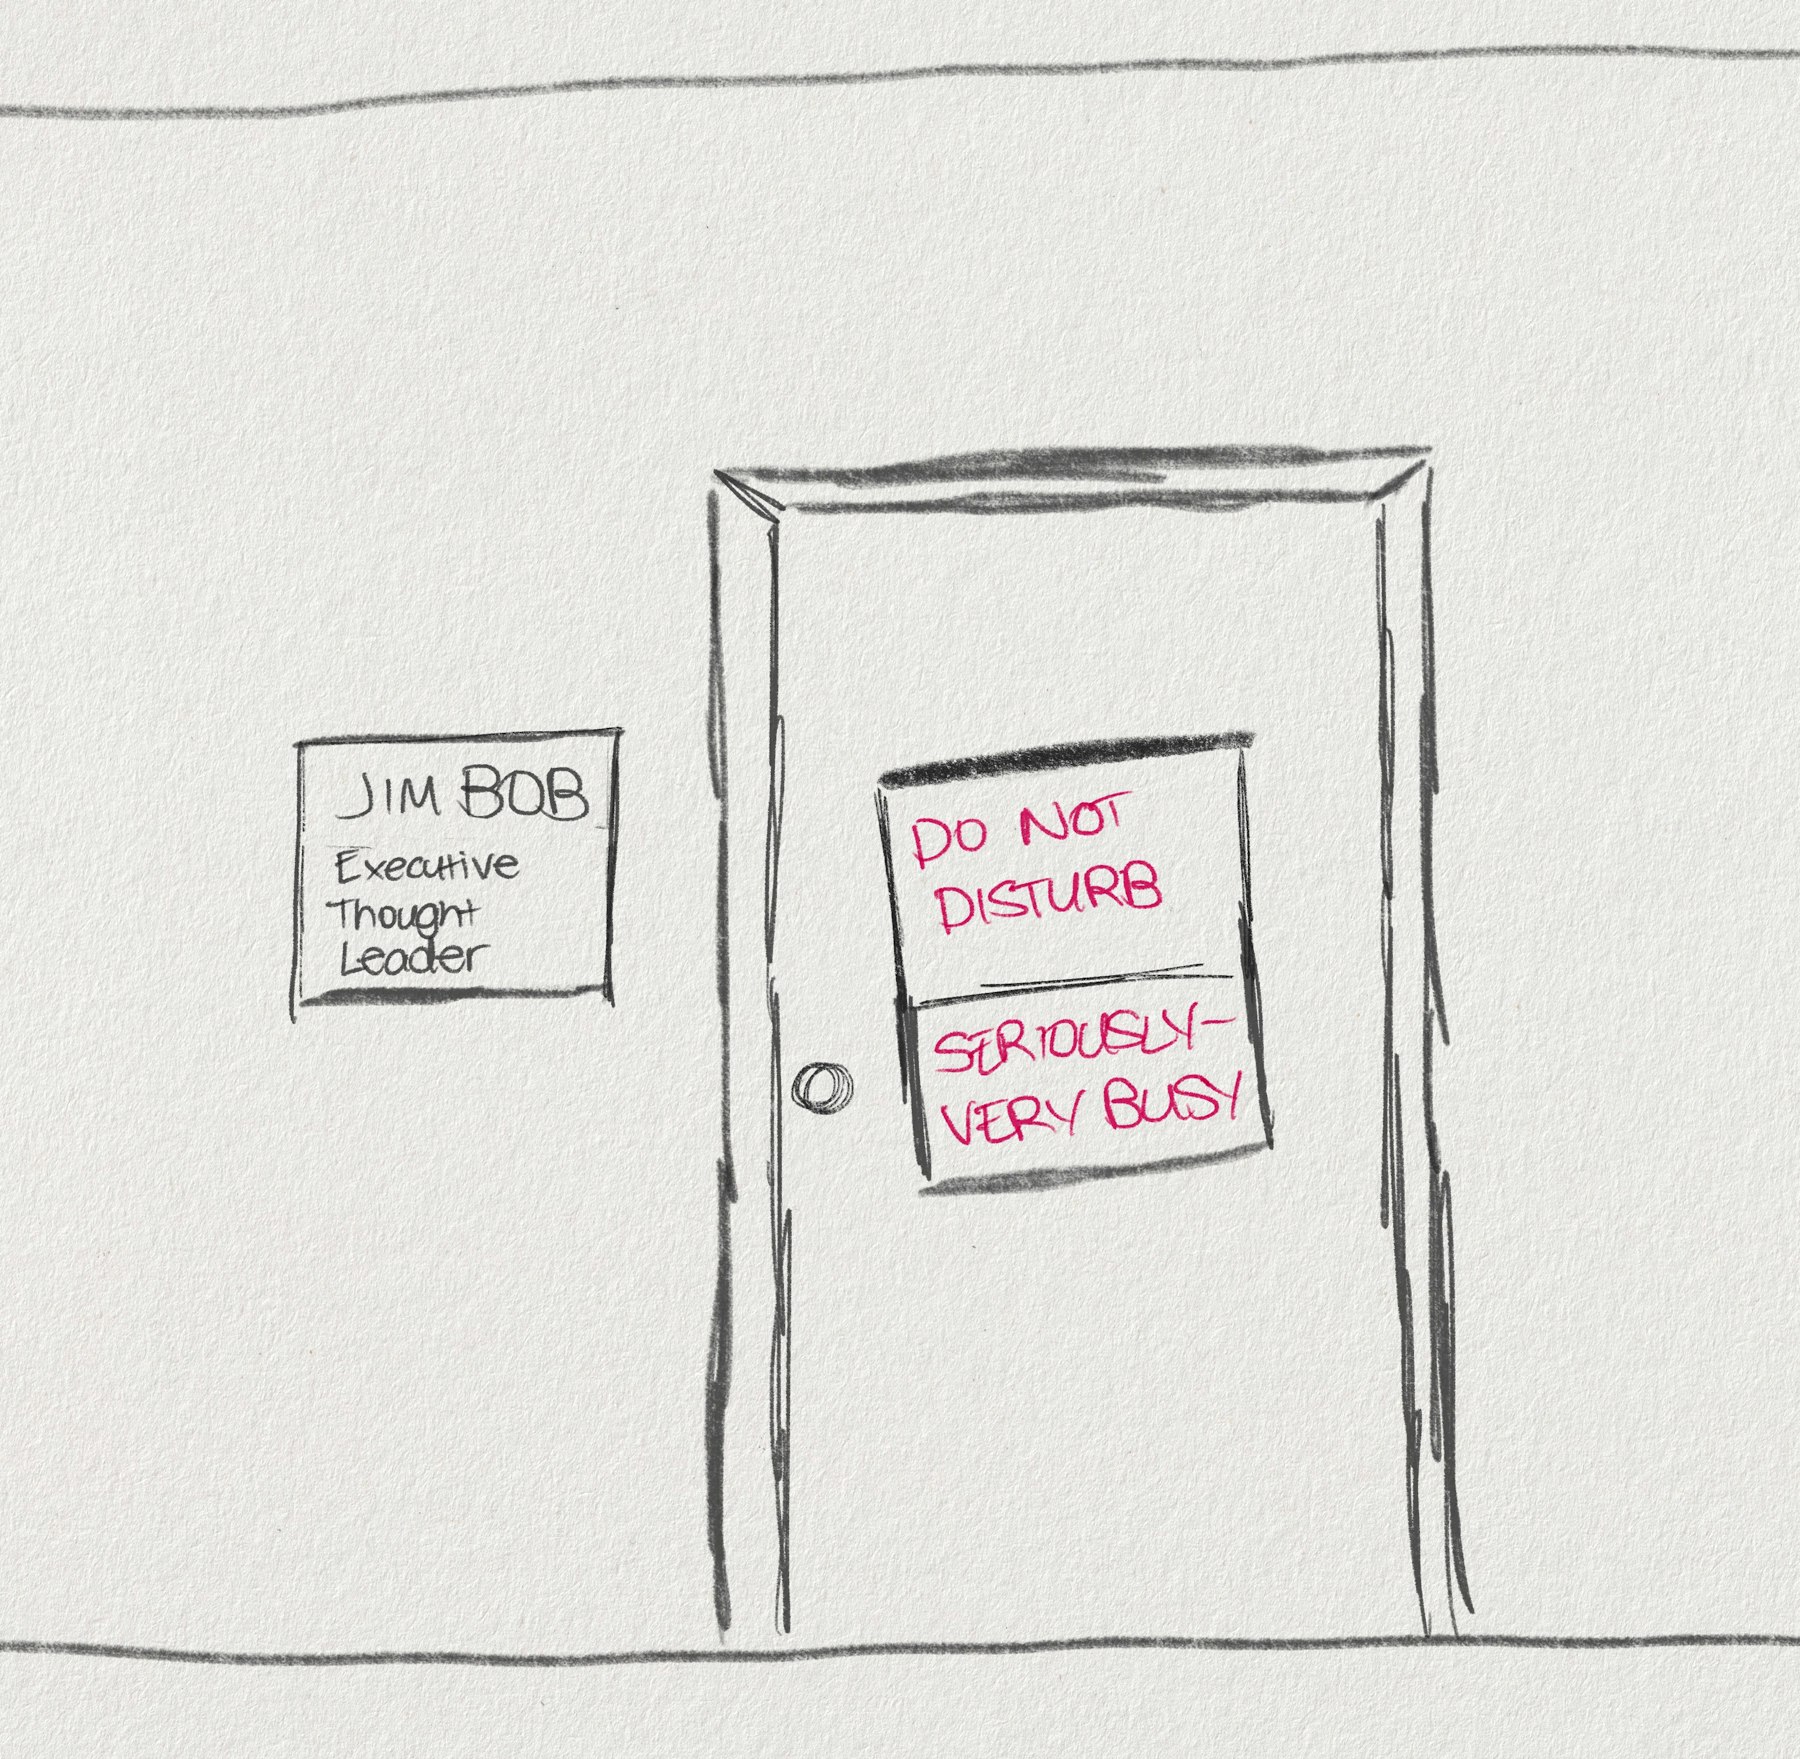 JIM BOB
Executive
Thought
Leader
DO NOT
DISTURB
SERIOUSLY-
VERY BUSY